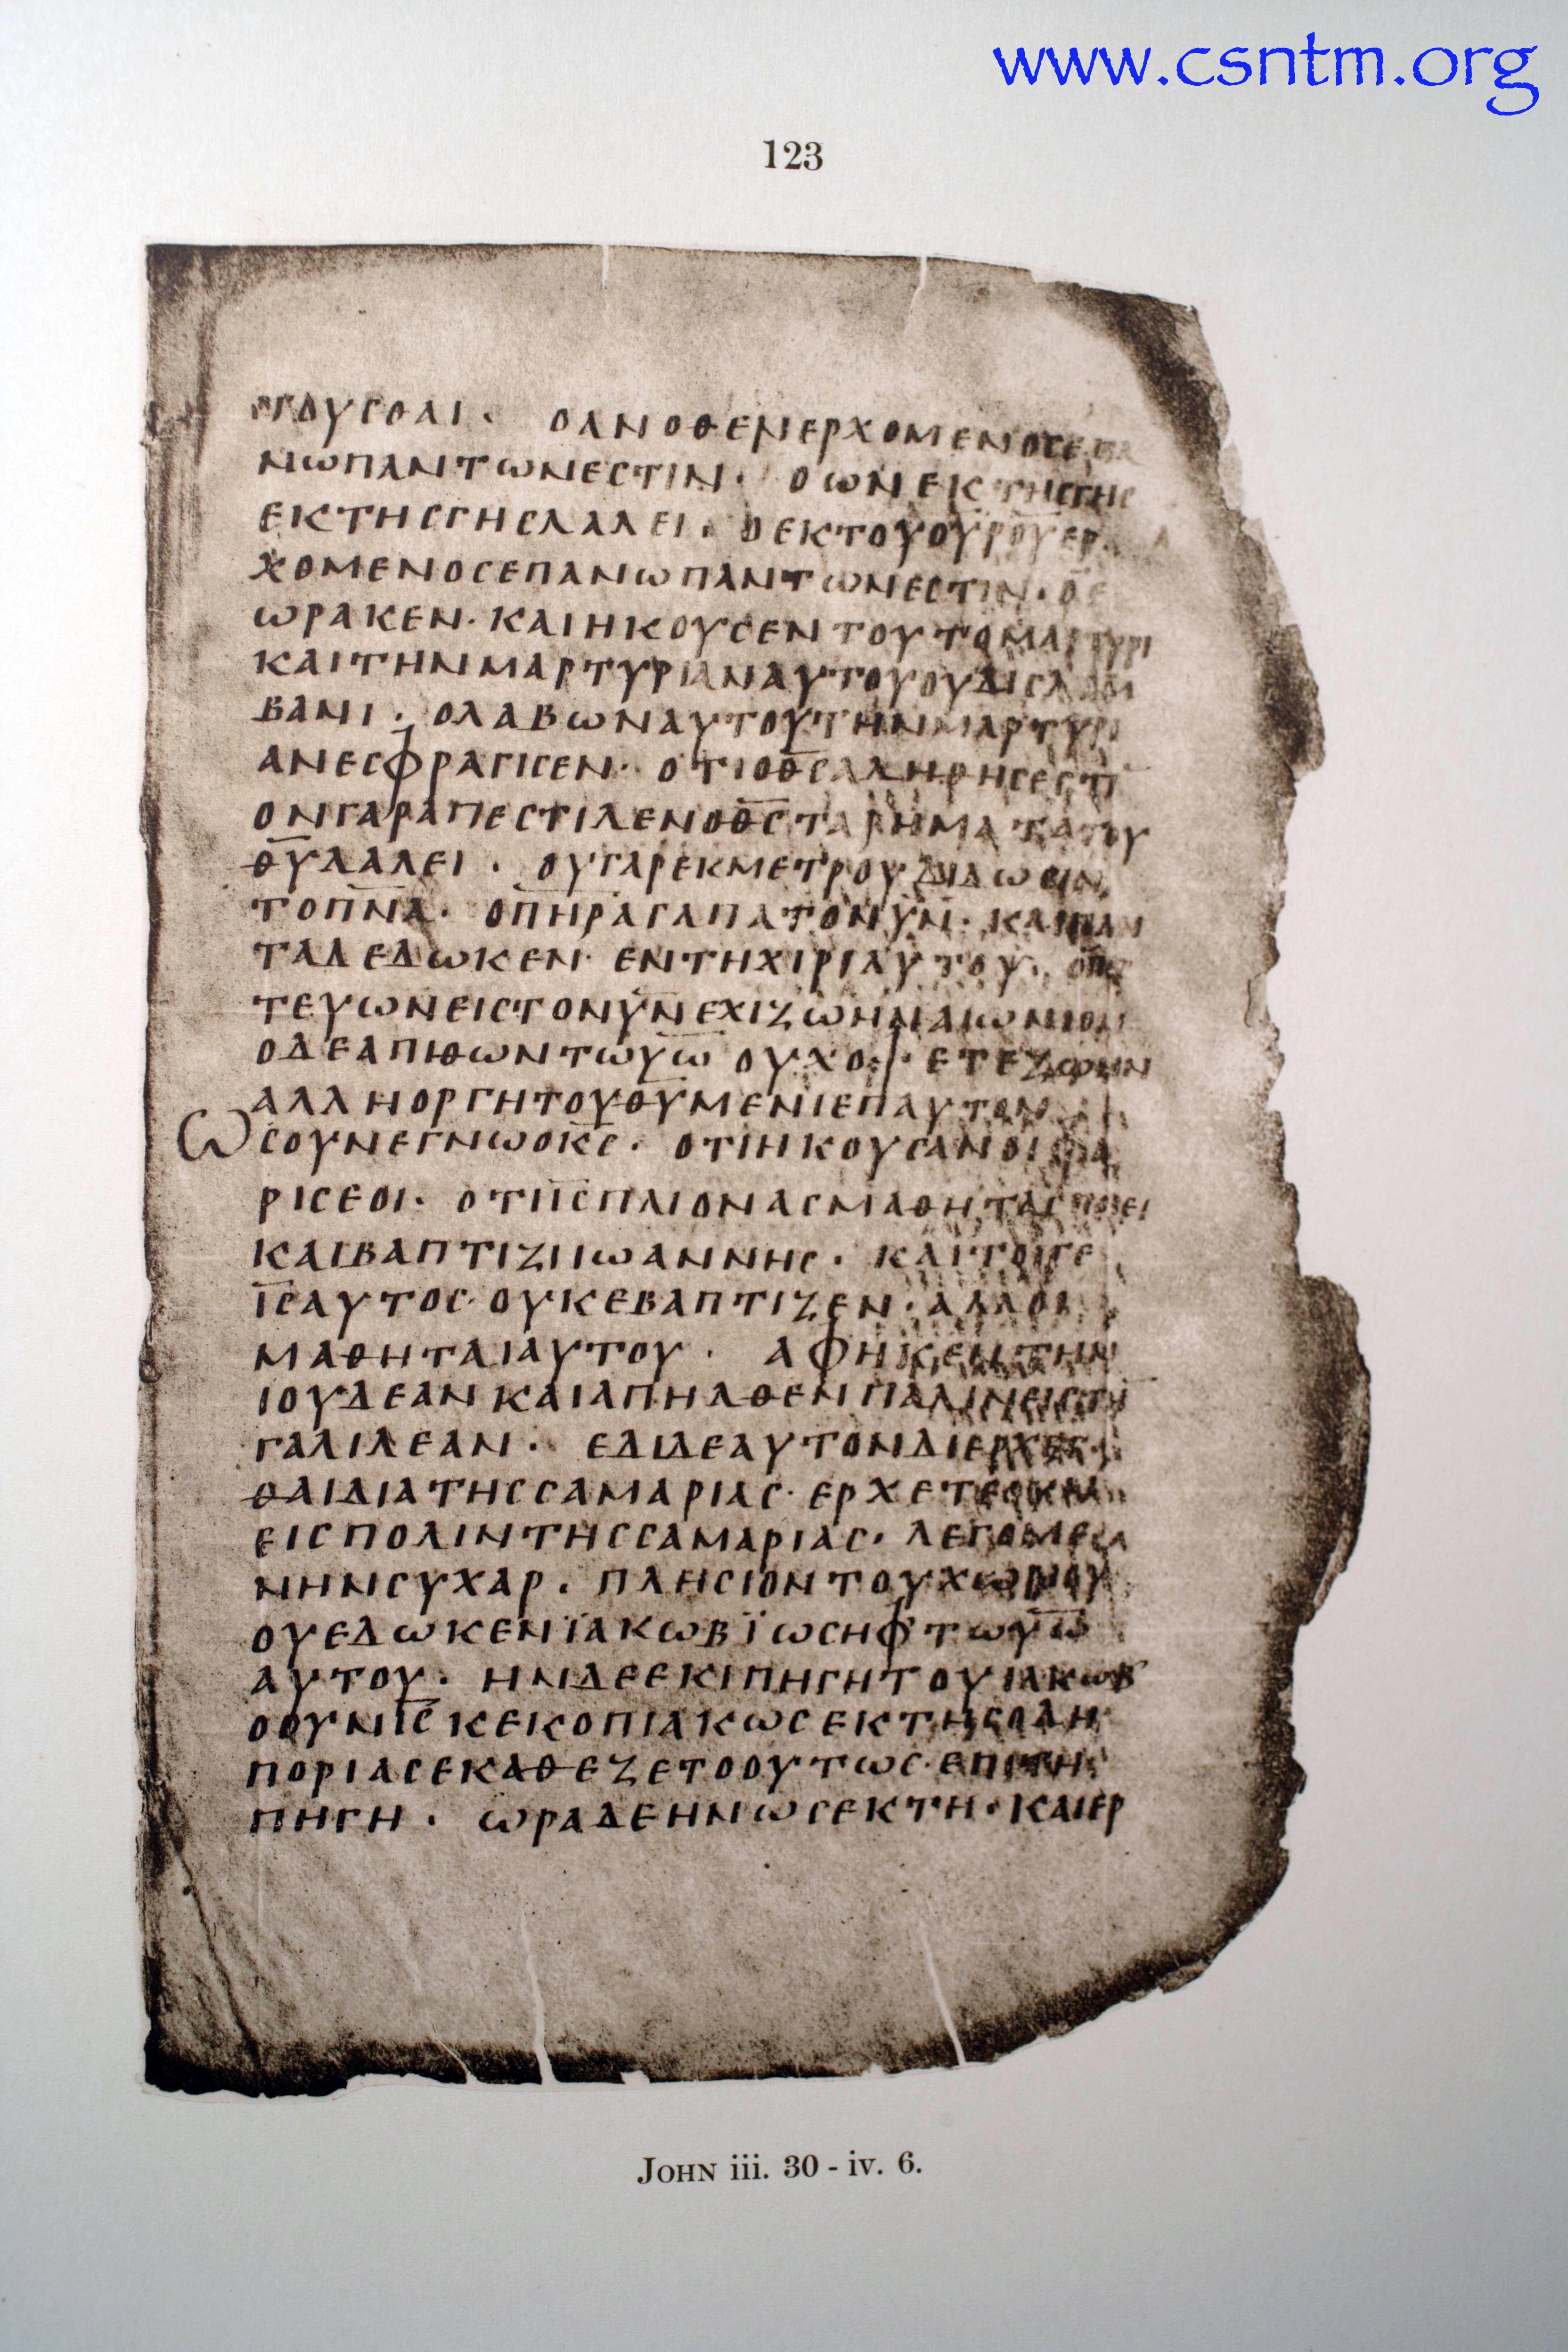 www.csntm.org
123
ΤΟΥCΘΑΙ · ΟΑΝΟΘΕΝΕΡΧΟΜΕΝΟCΕΠΑ
ΝΩΠΑΝΤΩΝΕCΤΙΝ · ΟΩΝΕΚΤΗCΓΗC
ΕΚΤΗCΓΗCΛΑΛΕΙ · ΟΕΚΤΟΥΟΥΡΟΥΕΡ
ΧΟΜΕΝΟCΕΠΑΝΩΠΑΝΤΩΝΕCΤΙΝ · ΟΕ
ΩΡΑΚΕΝ · ΚΑΙΗΚΟΥCΕΝΤΟΥΤΟΜΑΡΤΥΡΙ
ΚΑΙΤΗΝΜΑΡΤΥΡΙΑΝΑΥΤΟΥΟΥΔΙCΛΑΜ
ΒΑΝΙ · ΟΛΑΒΩΝΑΥΤΟΥΤΗΝΜΑΡΤΥΡΙ
ΑΝΕCΦΡΑΓΙCΕΝ · ΟΤΙΟΘ̅C̅ΑΛΗΘΗCΕCΤΙ̅
ΟΝΓΑΡΑΠΕCΤΙΛΕΝΟΘ̅C̅ΤΑΡΗΜΑΤΑΤΟΥ
Θ̅Υ̅ΛΑΛΕΙ · ΟΥΓΑΡΕΚΜΕΤΡΟΥΔΙΔΩCΙΝ
ΤΟΠ̅Ν̅Α̅ · ΟΠ̅Η̅Ρ̅ΑΓΑΠΑΤΟΝΥ̅Ν̅ · ΚΑΙΠΑΝ
ΤΑΔΕΔΩΚΕΝ · ΕΝΤΗΧΙΡΙΑΥΤΟΥ · ΟΠΙC
ΤΕΥΩΝΕΙCΤΟΝΥ̅Ν̅ΕΧΙΖΩΗΝΑΙΩΝΙΟΝ
ΟΔΕΑΠΙΘΩΝΤΩΥ̅Ω̅ ΟΥΧΟΨΕΤΕΖΩΗΝ
ΑΛΛΗΟΡΓΗΤΟΥΘ̅Υ̅ΜΕΝΙΕΠΑΥΤΟΝ
ΩCΟΥΝΕΓΝΩΟΚ̅C̅ · ΟΤΙΗΚΟΥCΑΝΟΙΦΑ
ΡΙCΕΟΙ · ΟΤΙΙ̅C̅ΠΛΙΟΝΑCΜΑΘΗΤΑCΠΟΙΕΙ
ΚΑΙΒΑΠΤΙΖΙΙΩΑΝΝΗC · ΚΑΙΤΟΙΓΕ
Ι̅C̅ΑΥΤΟC · ΟΥΚΕΒΑΠΤΙΖΕΝ · ΑΛΛΟΙ
ΜΑΘΗΤΑΙΑΥΤΟΥ · ΑΦΗΚΕΝΤΗΝ
ΙΟΥΔΕΑΝΚΑΙΑΠΗΛΘΕΝΠΑΛΙΝΕΙCΤΗ̅
ΓΑΛΙΛΕΑΝ · ΕΔΙΔΕΑΥΤΟΝΔΙΕΡΧΕC
ΘΑΙΔΙΑΤΗCCΑΜΑΡΙΑC · ΕΡΧΕΤΕΟΥΝ
ΕΙCΠΟΛΙΝΤΗCCΑΜΑΡΙΑC · ΛΕΓΟΜΕ
ΝΗΝCΥΧΑΡ · ΠΛΗCΙΟΝΤΟΥΧΩΡΙΟΥ
ΟΥΕΔΩΚΕΝΪΑΚΩΒΪΩCΗΦΤΩΥ̅Ω̅
ΑΥΤΟΥ · ΗΝΔΕΕΚΙΠΗΓΗΤΟΥΙΑΚΩΒ
ΟΟΥΝΙ̅C̅ΚΕΚΟΠΙΑΚΩCΕΚΤΗCΟΔΗ
ΠΟΡΙΑCΕΚΑΘΕΖΕΤΟΟΥΤΩC · ΕΠΙΤΗ
ΠΗΓΗ · ΩΡΑΔΕΗΝΩCΕΚΤΗ · ΚΑΙΕΡ
JOHN iii. 30 - iv. 6.